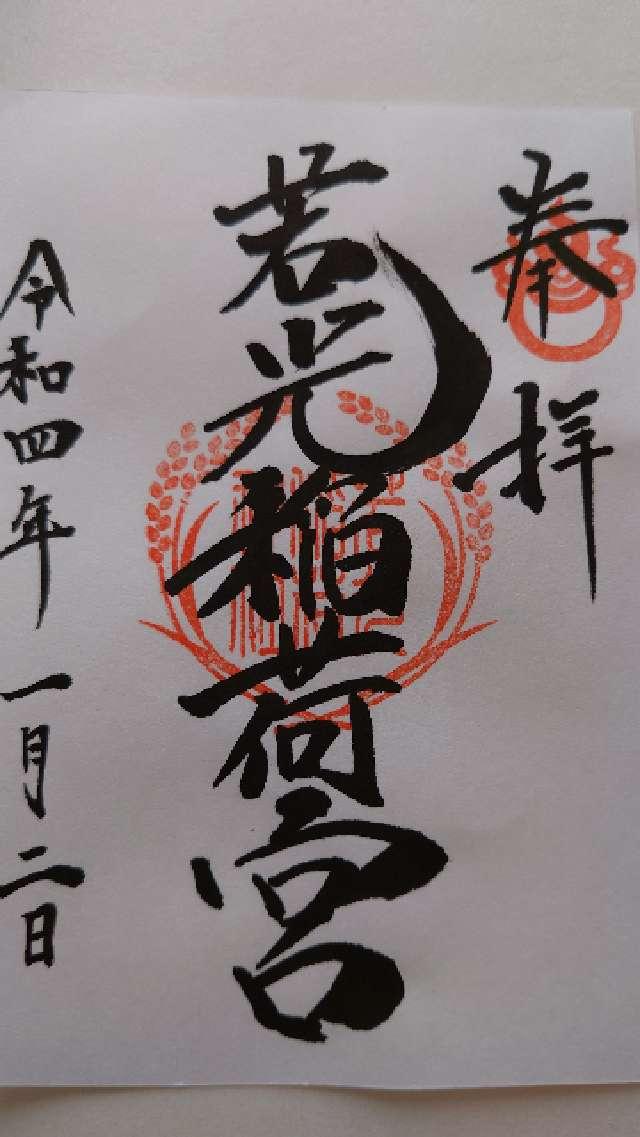 奉拝
若光稲荷宮
令和四年 一月二日